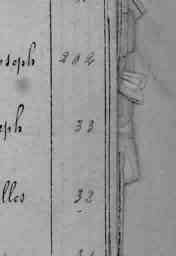 oseph 204
eph 33
lles 32